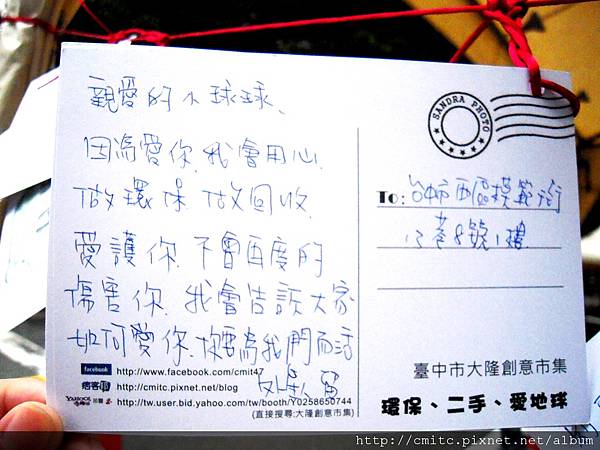 親愛的小球球、
因為愛你.我會用心.
做環保.做回收.
愛護你.不會再度的
傷害你.我會告訴大家
如何愛你.你要為我們而活
SANDRA PHOTO
To: 台中市西區模範街
12巷8號1樓
facebook http://www.facebook.com/cmit47
痞客邦 http://cmitc.pixnet.net/blog
YAHOO! http://tw.user.bid.yahoo.com/tw/booth/Y0258650744
(直接搜尋:大隆創意市集)
臺中市大隆創意市集
環保、二手、愛地球
http://cmitc.pixnet.net/album